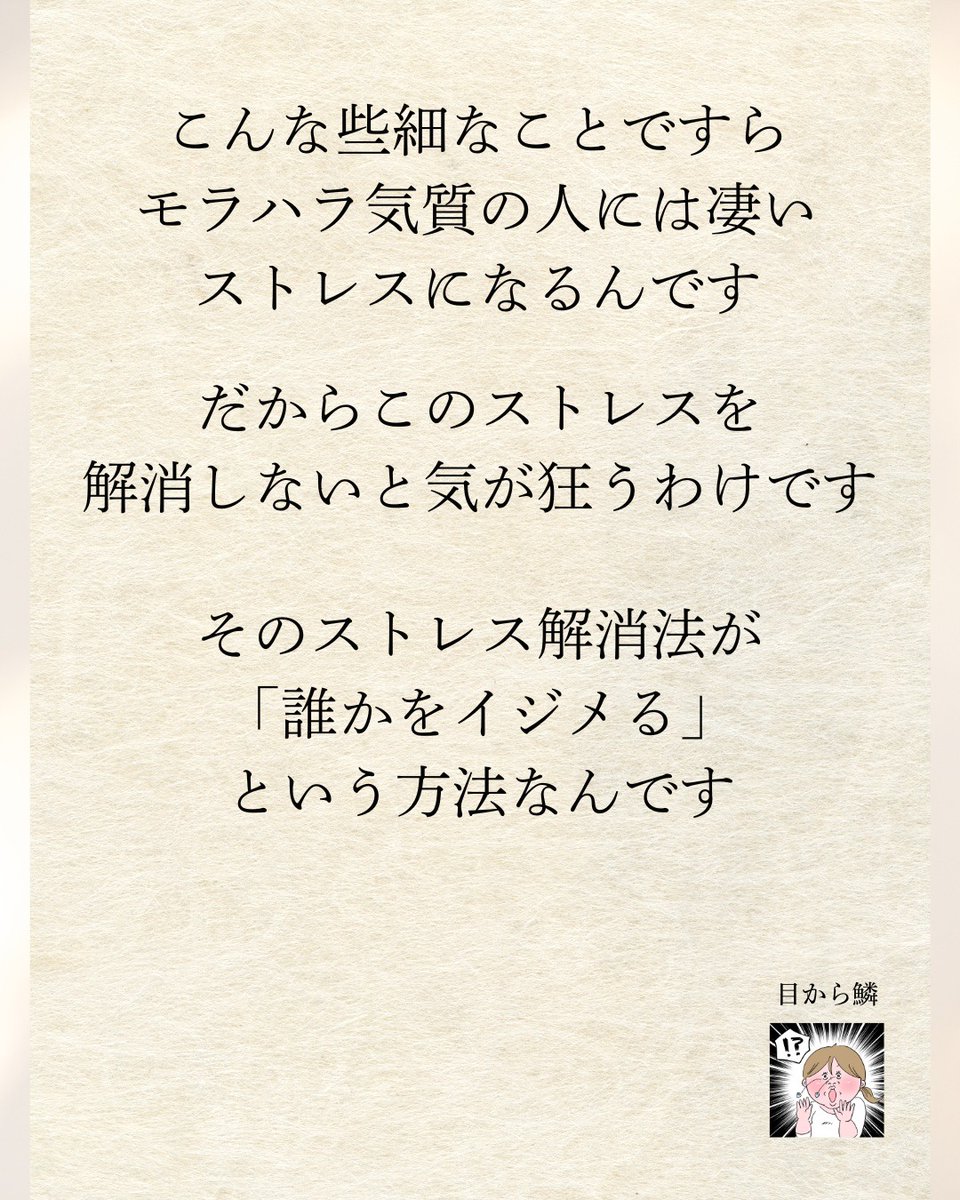 こんな些細なことですら
モラハラ気質の人には凄い
ストレスになるんです
だからこのストレスを
解消しないと気が狂うわけです
そのストレス解消法が
「誰かをイジメる」
という方法なんです
目から鱗
!?